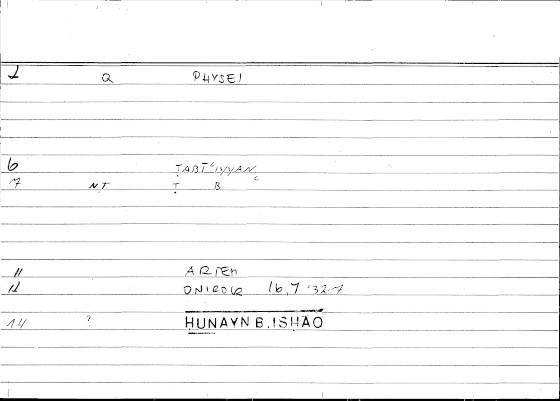 1 Q PHYSEI
6 ṬABĪʿIYYAN
7 NT Ṭ B ʿ
11 ARTEM
12 ONIROCR 16,7-32-7
14 ? ḤUNAYN B. ISḤĀQ